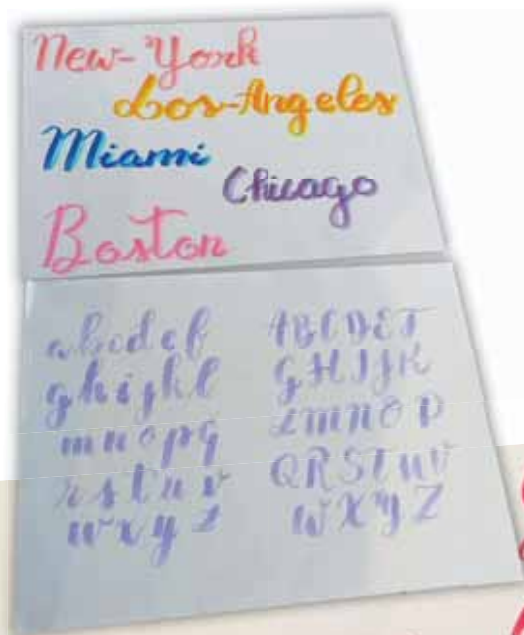 New-York
Los-Angeles
Miami
Chicago
Boston
a b c d e f
g h i j k l
m n o p q
r s t u v
w x y z
A B C D E F
G H I J K
L M N O P
Q R S T U V
W X Y Z